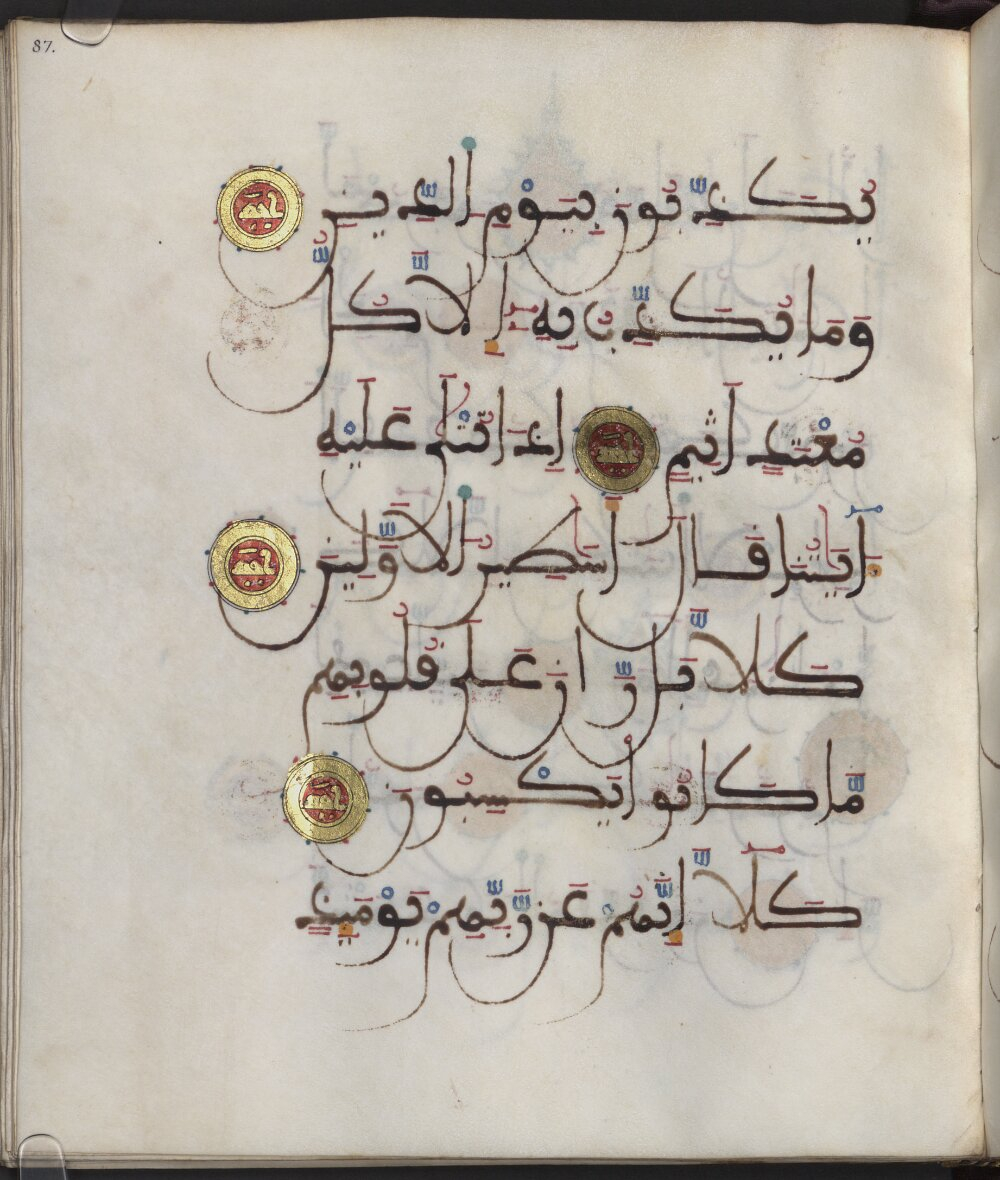 87.
يُكَذِّبُونَ بِيَوْمِ الدِّينِ
وَمَا يُكَذِّبُ بِهِ إِلَّا كُلُّ
مُعْتَدٍ أَثِيمٍ إِذَا تُتْلَى عَلَيْهِ
ءَايَٰتُنَا قَالَ أَسَٰطِيرُ الْأَوَّلِينَ
كَلَّا بَل رَّانَ عَلَى قُلُوبِهِم
مَّا كَانُوا يَكْسِبُونَ
كَلَّا إِنَّهُمْ عَن رَّبِّهِمْ يَوْمَئِذٍ